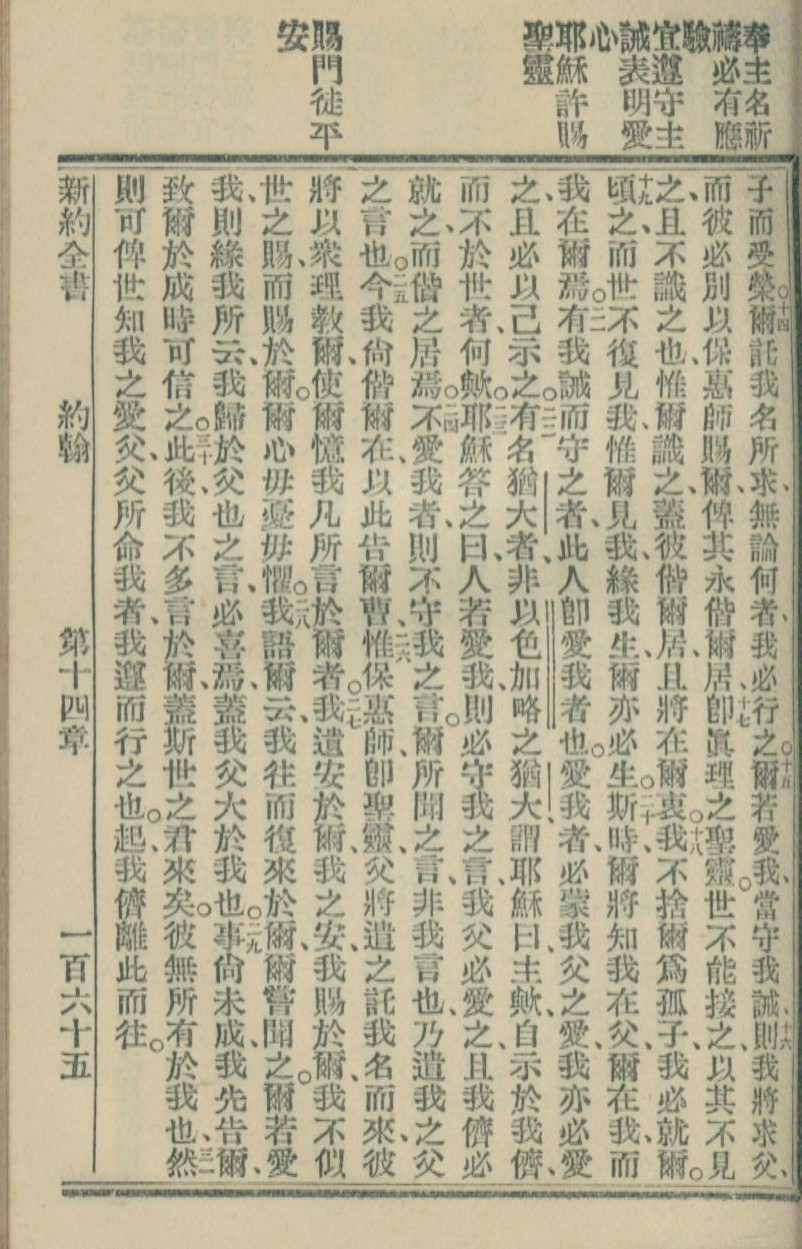 奉主名祈
禱必有應
驗
宜遵守主
誡表明愛
心
耶穌許賜
聖靈
賜門徒平
安
子而受榮。十四爾託我名所求、無論何者、我必行之。十五爾若愛我、當守我誡、十六則我將求父、
而彼必別以保惠師賜爾、俾其永偕爾居、十七卽眞理之聖靈。世不能接之、以其不見
之、且不識之也、惟爾識之、蓋彼偕爾居、且將在爾衷。十八我不捨爾爲孤子、我必就爾。
十九頃之、而世不復見我、惟爾見我、緣我生、爾亦必生。二十斯時、爾將知我在父、爾在我、而
我在爾焉。二一有我誡而守之者、此人卽愛我者也。愛我者、必蒙我父之愛、我亦必愛
之、且必以己示之。二二有名猶大者、非以色加略之猶大、謂耶穌曰、主歟、自示於我儕、
而不於世者、何歟。二三耶穌答之曰、人若愛我、則必守我之言、我父必愛之、且我儕必
就之、而偕之居焉。二四不愛我者、則不守我之言。爾所聞之言、非我言也、乃遣我之父
之言也。二五今我尙偕爾在、以此告爾曹、二六惟保惠師、卽聖靈、父將遣之託我名而來、彼
將以衆理教爾、使爾憶我凡所言於爾者。二七我遺安於爾、我之安、我賜於爾、我不似
世之賜、而賜於爾。爾心毋憂毋懼。二八我語爾云、我往而復來於爾、爾嘗聞之。爾若愛
我、則緣我所云、我歸於父也之言、必喜焉、蓋我父大於我也。二九事尙未成、我先告爾、
致爾於成時可信之。三十此後、我不多言於爾、蓋斯世之君來矣。彼無所有於我也、三一然
則可俾世知我之愛父、父所命我者、我遵而行之也。起、我儕離此而往。
新約全書 約翰 第十四章 一百六十五